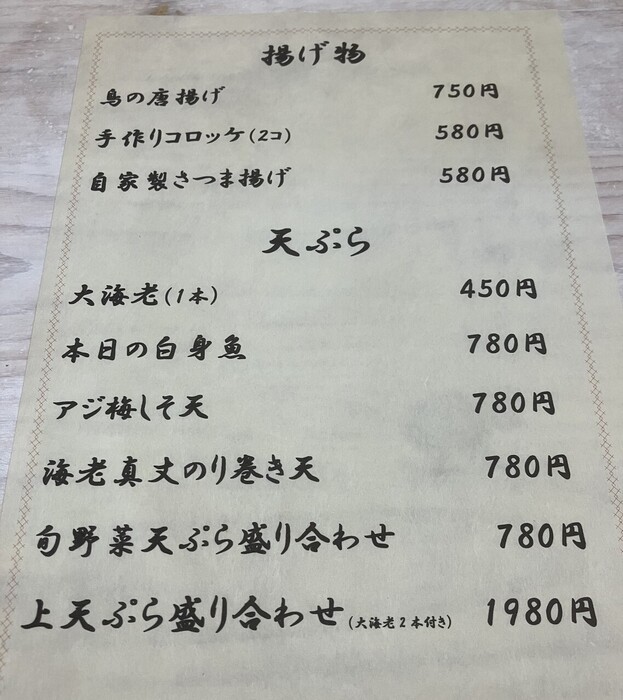 揚げ物
鳥の唐揚げ 750円
手作りコロッケ(2コ) 580円
自家製さつま揚げ 580円
天ぷら
大海老(1本) 450円
本日の白身魚 780円
アジ梅しそ天 780円
海老真丈のり巻き天 780円
旬野菜天ぷら盛り合わせ 780円
上天ぷら盛り合わせ(大海老2本付き) 1980円